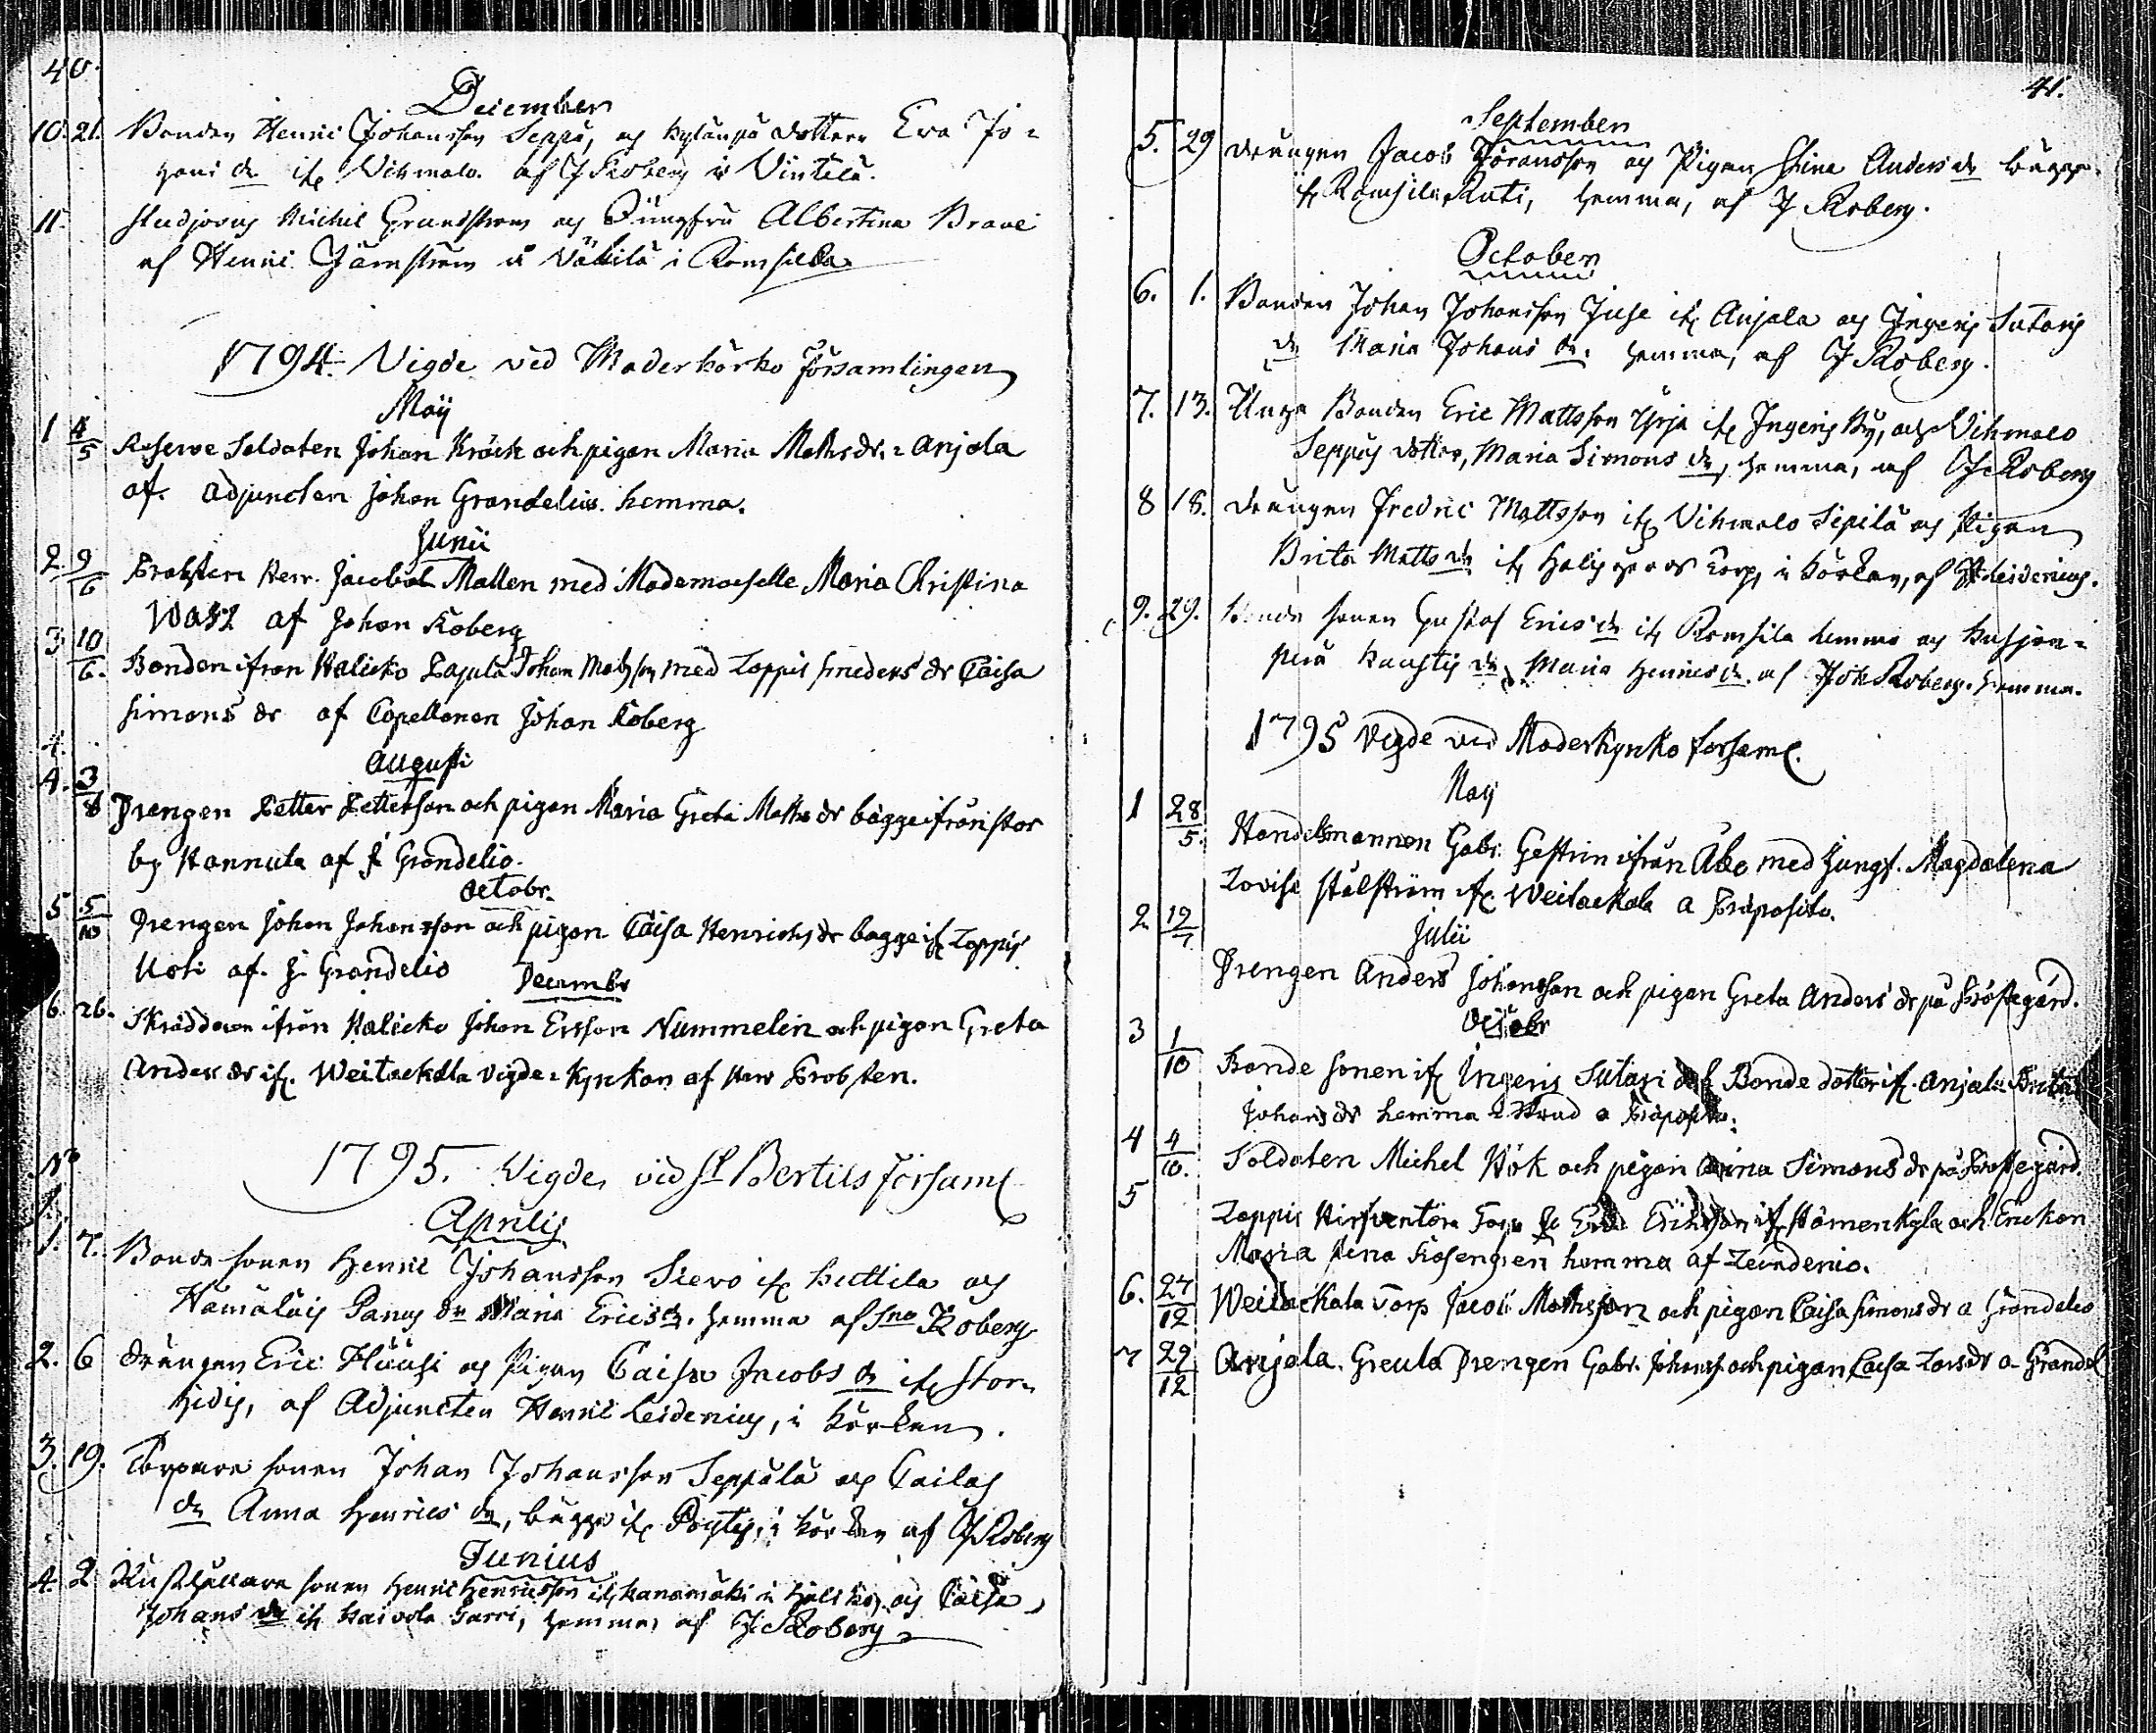 40.
December
10. 21. Bonden Henric Johansson Seppä, och Kylänpä dotteren Eva Jo=
hans dr if. Vihmalo af J Roberg i Vintelä.
11. Studiosus Michel Grundström och Jungfru Albertina Brave
af Henric Järnström å Väkilä i Romsilla
1794 Vigde ved Moderkörko Församlingen
Maÿ
1 4/5 Reserve Soldaten Johan Kröck och pigan Maria Mathsdr. i Anjala
af. Adjuncten Johan Grandelius. hemma.
Junii
2. 9/6 Probsten Herr. Jacob Mallen med Mademoiselle Maria Christina
af Johan Roberg
3 10/6. Bonden ifrån Halicko Pajula Johan Matsson med Loppis smedens dr Caisa
Simons dr af Capellanen Johan Roberg
4.
Augusti
4. 3/8 Drengen Petter Pettersson och pigan Maria Greta Maths dr bägge ifrån stor
by Hannula af J Grandelio.
Octobr.
5 5/10 Drengen Johan Johansson och pigan Caisa Henrichs dr bagge if. Loppis
Uoti af. J. Grandelio
Decembr
6. 26. Skräddaren ifrån Halicko Johan Ersson Nummelin och pigan Greta
Anders dr if. Weitackala vigde i Kyrkan af Herr Probsten.
No
1795. Vigde vid St Bertils Församl
1.
Aprilis
1. 7. Bonde sonen Henric Johansson Sievo if. Kuttila och
Hämäläis Panus dr Maria Ericsdr. hemma af Sno Roberg
2. 6 drängen Eric Huusi och Pigan Caisa Jacobs dr if. Stor
hidis, af Adjuncten Henric Leidenius, i körkan.
3. 19. Torpare sonen Johan Johansson Seppälä och Cailas
dr Anna Henrics dr, bägge if. Pöytis, i körkan af J Roberg
Junius
4. 2 Rusthållare sonen Henric Henricsson if. Kanamäki i och Caisa
Johans dr if. Kaivola Parri, hemma, af J Roberg
41.
September
5. 29 drängen Jacob Jöransson och Pigan Stina Anders dr bägge
if. Romsila Ruti, hemma, af J Roberg.
October
6. 1. Bonden Johan Johansson Juse if. Anjala och Ingeris Sutaris
dr Maria Johans dr. hemma, af J Roberg.
7. 13. Unga Bonden Eric Mattsson Yrjä if. Ingeris by, och Vihmalo
Seppäs dotter, Maria Simons dr, hemma, af J Roberg
8 18. drängen Fredric Mattsson if. Vihmalo Sipilä och Pigan
Brita Matts dr if. torp, i körkan, af H Leidenius.
9. 29. Bonde sonen Gustaf Erics if. Romsila hemma och
perä dr Maria Henrics dr. af Joh Roberg. hemma.
1795 Vigde vid Moderkyrko forsaml.
May
1 28/5. Handelsmannen Gabr. Gestrin ifrån Åbo med Jungf. Magdalena
Lovisa Stålström if. Weitackala a Præposito.
2 19/7
Julii
Drengen Anders Johansson och pigan Greta Anders dr på Pröstegård.
Octobr
3 1/10 Bonde sonen if. Ingeris Sutari och Bonde dotter if. Anjala Brita
Johans dr hemma a Præposito.
4 4/10. Soldaten Michel Hök och pigan Simons dr på Prostegård.
5 Loppis Torp Eric Ericksson if. och Enckan
Maria Stina Rosengren hemma af Leindenio.
6. 27/12 Weitackala Torp Jacob Mathsson och pigan Caisa Simons dr a Grandelio
7 29/12 Anjala Greula Drengen Gabr. Johans. och pigan Caisa Lars dr a Grandel